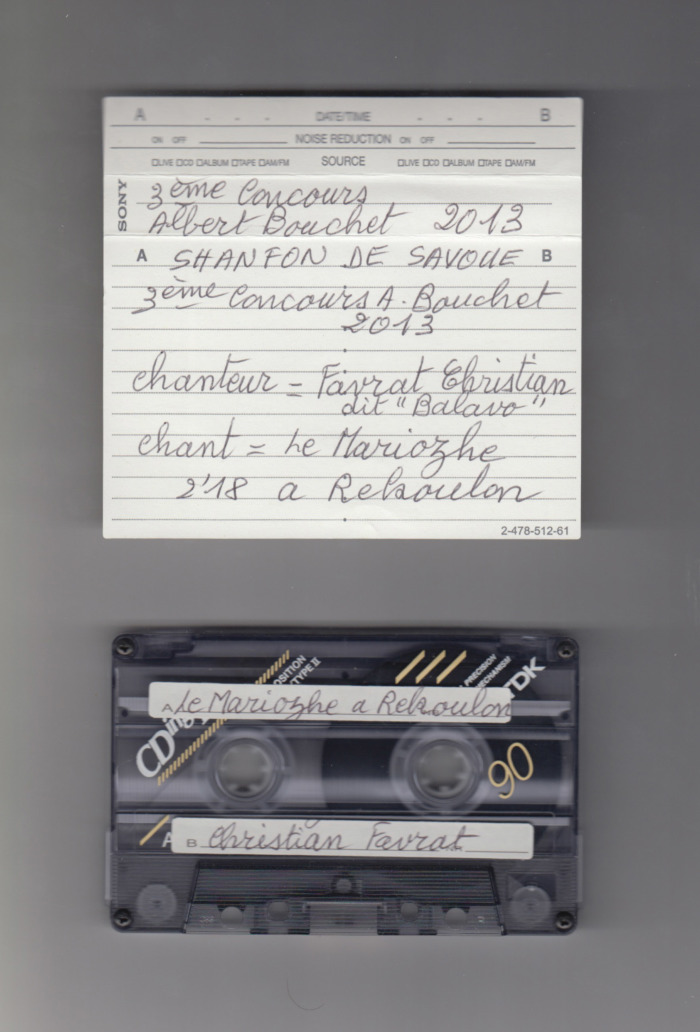 A - - - DATE/TIME - - - B
ON OFF NOISE REDUCTION ON OFF
□LIVE □CD □ALBUM □TAPE □AM/FM SOURCE □LIVE □CD □ALBUM □TAPE □AM/FM
SONY
3ème Concours
Albert Bouchet 2013
A SHANFON DE SAVOUE B
3ème Concours A. Bouchet
2013
chanteur = Favrat Christian
dit "Balavo"
chant = Le Mariozhe
2'18 a Rekoulon
2-478-512-61
POSITION
TYPE II
PRECISION
MECHANISM
TDK
A Le Mariozhe a Rekoulon
CDing
90
A
B Christian Favrat